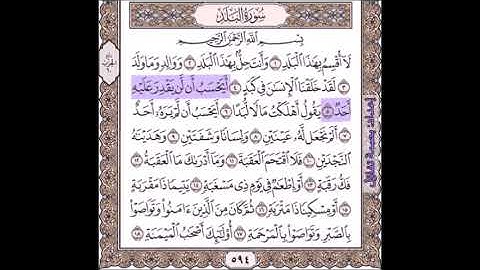 سُورَةُ البَلَدِ
بِسْمِ اللَّهِ الرَّحْمَٰنِ الرَّحِيمِ
لَا أُقْسِمُ بِهَٰذَا الْبَلَدِ ١ وَأَنتَ حِلٌّ بِهَٰذَا الْبَلَدِ ٢ وَوَالِدٍ وَمَا وَلَدَ
٣ لَقَدْ خَلَقْنَا الْإِنسَٰنَ فِي كَبَدٍ ٤ أَيَحْسَبُ أَن لَّن يَقْدِرَ عَلَيْهِ
أَحَدٌ ٥ يَقُولُ أَهْلَكْتُ مَالًا لُّبَدًا ٦ أَيَحْسَبُ أَن لَّمْ يَرَهُ أَحَدٌ
٧ أَلَمْ نَجْعَل لَّهُ عَيْنَيْنِ ٨ وَلِسَانًا وَشَفَتَيْنِ ٩ وَهَدَيْنَٰهُ
النَّجْدَيْنِ ١٠ فَلَا اقْتَحَمَ الْعَقَبَةَ ١١ وَمَا أَدْرَىٰكَ مَا الْعَقَبَةُ ١٢
فَكُّ رَقَبَةٍ ١٣ أَوْ إِطْعَٰمٌ فِي يَوْمٍ ذِي مَسْغَبَةٍ ١٤ يَتِيمًا ذَا مَقْرَبَةٍ
١٥ أَوْ مِسْكِينًا ذَا مَتْرَبَةٍ ١٦ ثُمَّ كَانَ مِنَ الَّذِينَ ءَامَنُوا وَتَوَاصَوْا
بِالصَّبْرِ وَتَوَاصَوْا بِالْمَرْحَمَةِ ١٧ أُولَٰئِكَ أَصْحَٰبُ الْمَيْمَنَةِ ١٨
٥٩٤